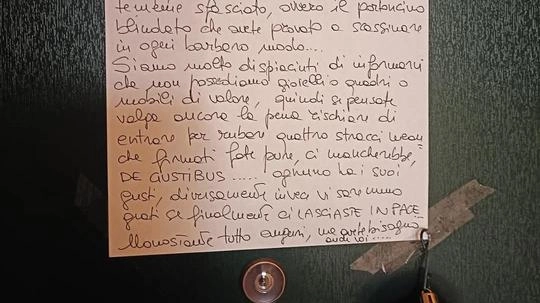 temente sfasciato, ovvero il portoncino
blindato che avete provato a scassinare
in ogni barbaro modo....
Siamo molto dispiaciuti di informarvi
che non possediamo gioielli o quadri o
mobili di valore, quindi se pensate
valga ancora la pena rischiare di
entrare per rubare quattro stracci nean=
che firmati fate pure, ci mancherebbe,
DE GUSTIBUS ..... ognuno ha i suoi
gusti, diversamente invece vi saremmo
grati se finalmente ci LASCIASTE IN PACE
Nonostante tutto auguri, ne avete bisogno
anche voi .....